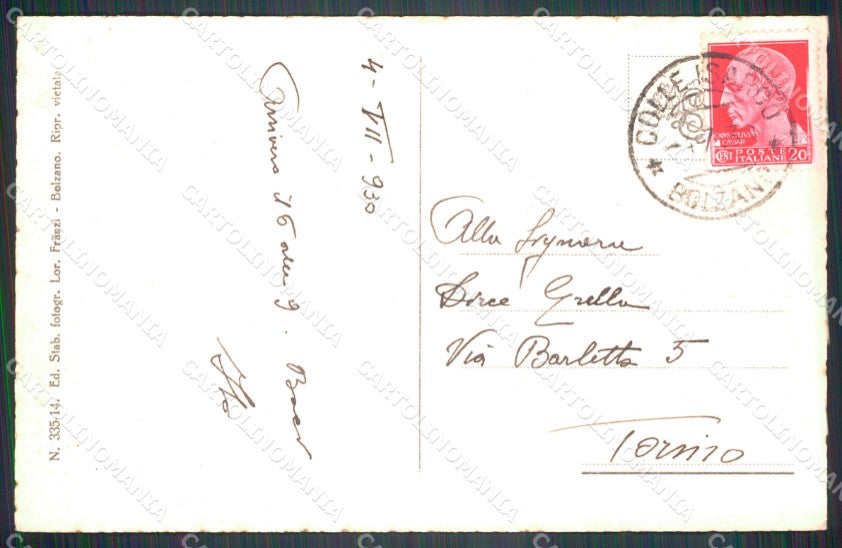 N. 335-14. Ed. Stab. fotogr. Lor. Fränzl - Bolzano. Ripr. vietata
4-VII-930
Arrivero il 6 alle 9. Baci
COLLE ISARCO
BOLZANO
POSTE
ITALIANE
CENT 20
Alla Signorina
Dirce Grella
Via Barletta 5
Torino
CARTOLINOMANIA